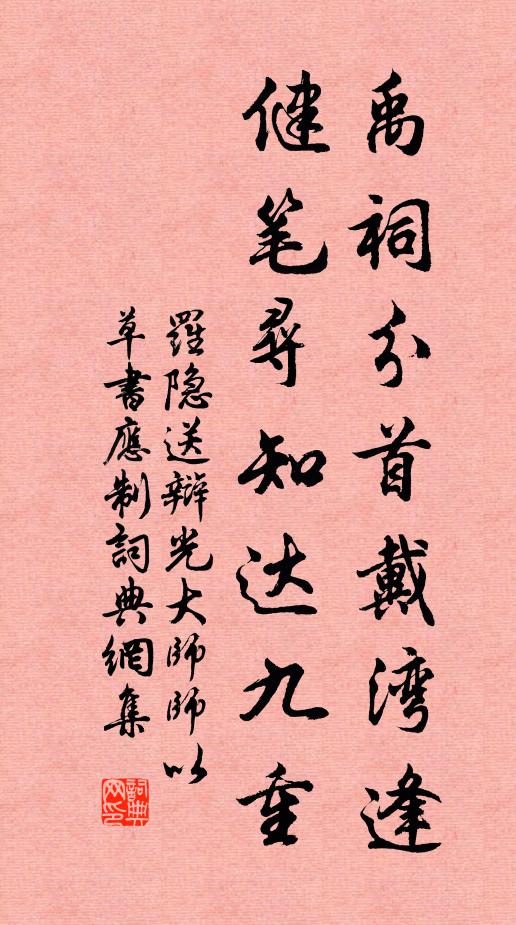 禹祠分首戴湾逢
健笔寻知达九重
羅隐送辩光大师师以
草書應制詞典網集
詞典网印